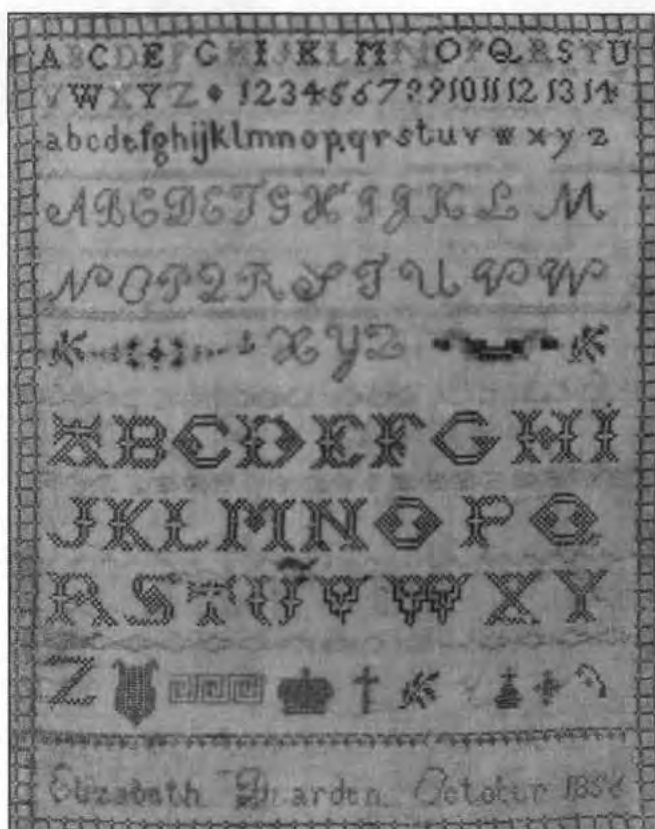 A B C D E F G H I J K L M N O P Q R S T U
V W X Y Z 1 2 3 4 5 6 7 8 9 10 11 12 13 14
a b c d e f g h i j k l m n o p q r s t u v w x y z
A B C D E F G H I J K L M
N O P Q R S T U V W
X Y Z
A B C D E F G H I
J K L M N O P Q
R S T U V W X Y
Z
Elizabeth Dearden October